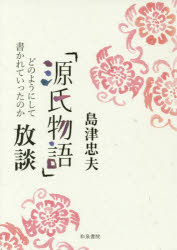 「源氏物語」放談
どのようにして
書かれていったのか
島津忠夫
和泉書院